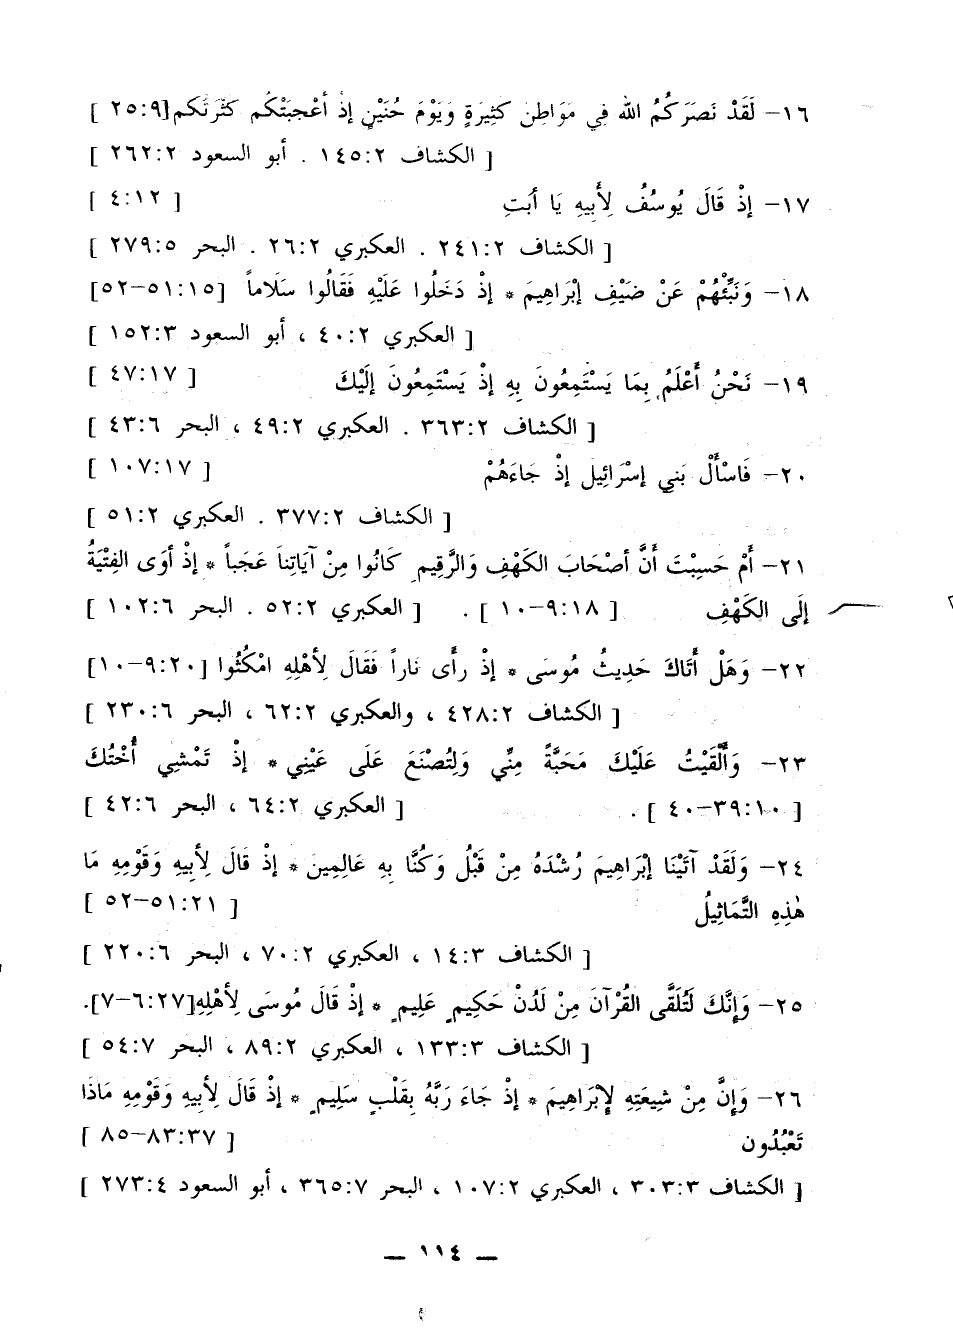 ١٦- لَقَدْ نَصَرَكُمُ الله فِي مَوَاطِنَ كَثِيرَةٍ وَيَوْمَ حُنَيْنٍ إذْ أعْجَبَتْكُم كَثْرَتُكم[٢٥:٩ ]
[ الكشاف ١٤٥:٢ . أبو السعود ٢٦٢:٢ ]
١٧- إذْ قَالَ يُوسُفُ لِأَبِيهِ يَا أبَتِ [ ٤:١٢ ]
[ الكشاف ٢٤١:٢ . العكبري ٢٦:٢ . البحر ٢٧٩:٥ ]
١٨- وَنَبِّئْهُمْ عَنْ ضَيْفِ إبْرَاهِيمَ * إذْ دَخَلُوا عَلَيْهِ فَقَالُوا سَلَاماً [٥١:١٥-٥٢]
[ العكبري ٤٠:٢ ، أبو السعود ١٥٢:٣ ]
١٩- نَحْنُ أَعْلَمُ بِمَا يَسْتَمِعُونَ بِهِ إذْ يَسْتَمِعُونَ إلَيْكَ [ ٤٧:١٧ ]
[ الكشاف ٣٦٣:٢ . العكبري ٤٩:٢ ، البحر ٤٣:٦ ]
٢٠- فَاسْأَلْ بَنِي إسْرَائِيل إذْ جَاءَهُمْ [ ١٠٧:١٧ ]
[ الكشاف ٣٧٧:٢ . العكبري ٥١:٢ ]
٢١- أَمْ حَسِبْتَ أَنَّ أصْحَابَ الكَهْفِ وَالرَّقِيمِ كَانُوا مِنْ آيَاتِنَا عَجَباً * إذْ أوَى الفِتْيَةُ
إلَى الكَهْفِ [ ٩:١٨-١٠ ] . [ العكبري ٥٢:٢ . البحر ١٠٢:٦ ]
٢٢- وَهَلْ أَتَاكَ حَدِيثُ مُوسَى * إذْ رأى نَاراً فَقَالَ لِأهْلِهِ امْكُثُوا [٩:٢٠-١٠]
[ الكشاف ٤٢٨:٢ ، والعكبري ٦٢:٢ ، البحر ٢٣٠:٦ ]
٢٣- وَأَلْقَيْتُ عَلَيْكَ مَحَبَّةً مِنِّي وَلِتُصْنَعَ عَلَى عَيْنِي * إذْ تَمْشِي أُخْتُكَ
[ ٣٩:١٠-٤٠ ] . [ العكبري ٦٤:٢ ، البحر ٤٢:٦ ]
٢٤- وَلَقَدْ آتَيْنَا إبْرَاهِيمَ رُشْدَهُ مِنْ قَبْلُ وَكُنَّا بِهِ عَالِمِينَ * إذْ قَالَ لِأبِيهِ وَقَوْمِهِ مَا
هٰذِهِ التَّمَاثِيلُ [ ٥١:٢١-٥٢ ]
[ الكشاف ١٤:٣ ، العكبري ٧٠:٢ ، البحر ٢٢٠:٦ ]
٢٥- وَإنَّكَ لَتُلَقَّى القُرْآنَ مِنْ لَدُنْ حَكِيمٍ عَلِيمٍ * إذْ قَالَ مُوسَى لِأهْلِهِ[٦:٢٧-٧].
[ الكشاف ١٣٣:٣ ، العكبري ٨٩:٢ ، البحر ٥٤:٧ ]
٢٦- وَإنَّ مِنْ شِيعَتِهِ لَإبْرَاهِيمَ * إذْ جَاءَ رَبَّهُ بِقَلْبٍ سَلِيمٍ * إذْ قَالَ لِأبِيهِ وَقَوْمِهِ مَاذَا
تَعْبُدُون [ ٨٣:٣٧-٨٥ ]
[ الكشاف ٣٠٣:٣ ، العكبري ١٠٧:٢ ، البحر ٣٦٥:٧ ، أبو السعود ٢٧٣:٤ ]
— ١١٤ —